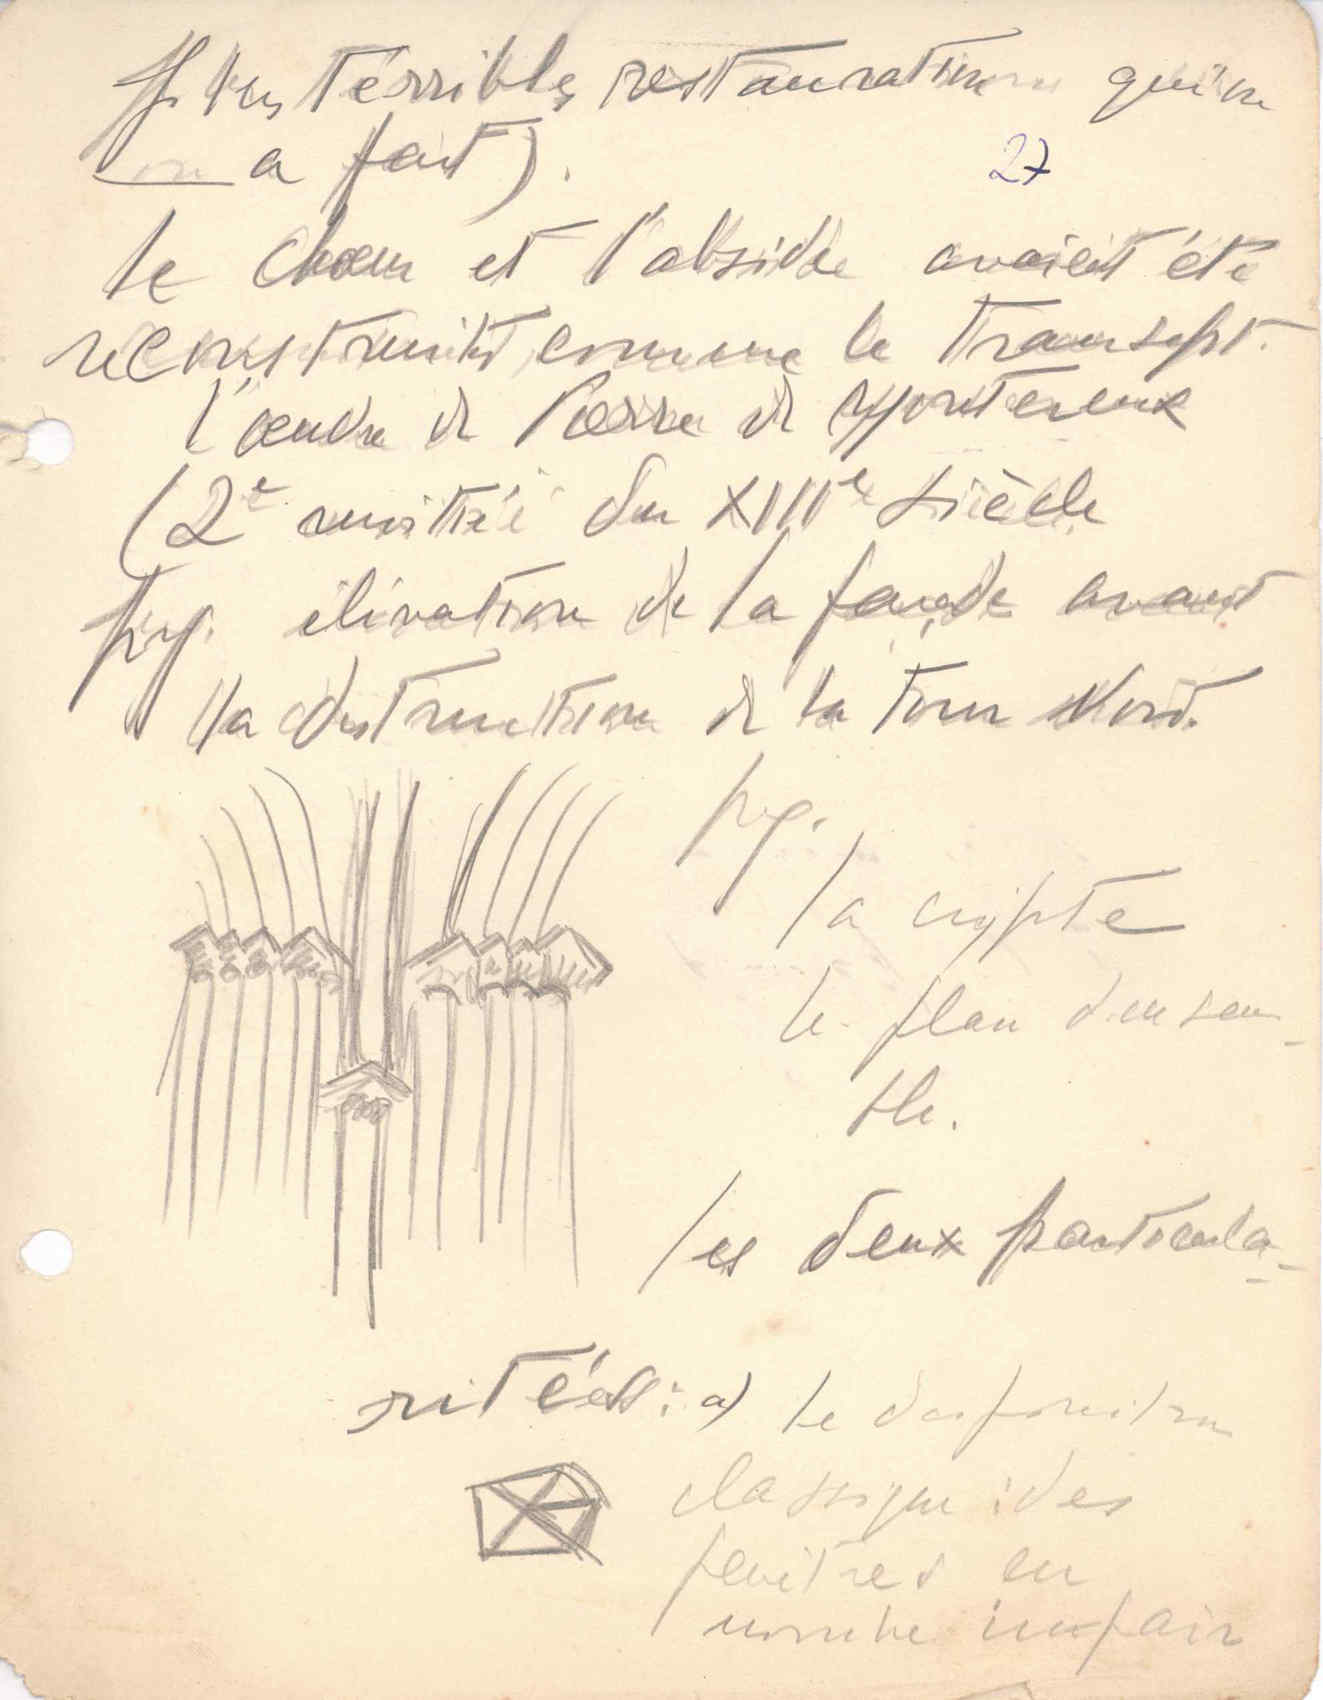 les terribles restaurations qu'on
on a fait).
27
le chœur et l'abside avaient été
reconstruits comme le transept.
l'œuvre de Pierre de Montereux
(2e moitié du XIIIe siècle
prj. élévation de la façade avant
la destruction de la tour Nord.
prj.
la crypte
le plan d'ensem-
ble.
les deux particula-
rités : a) le disposition
classique : des
fenêtres en
nombre impair